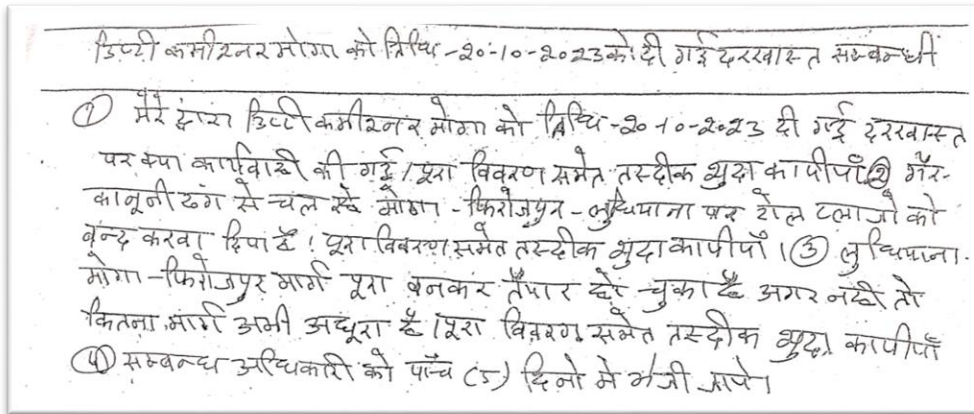 डिप्टी कमीश्नर मोगा को तिथि -20-10-2023को दी गई दरखास्त सम्बन्धी
① मेरे द्वारा डिप्टी कमीश्नर मोगा को तिथि -20-10-2023 दी गई दरखास्त
पर क्या कार्यवाही की गई / पूरा विवरण समेत तस्दीक शुदा कापीयाँ ② गैर-
कानूनी ढंग से चल रहे मोगा - फिरोजपुर - लुधियाना पर टोल प्लाजो को
बन्द करवा दिया है। पूरा विवरण समेत तस्दीक शुदा कापीयाँ । ③ लुधियाना-
मोगा - फिरोजपुर मार्ग पूरा बनकर तैयार हो चुका है अगर नही तो
कितना मार्ग अभी अधूरा है । पूरा विवरण समेत तस्दीक शुदा कापीयाँ
④ सम्बन्ध अधिकारी को पाँच (5) दिनो मे भेजी जाये।